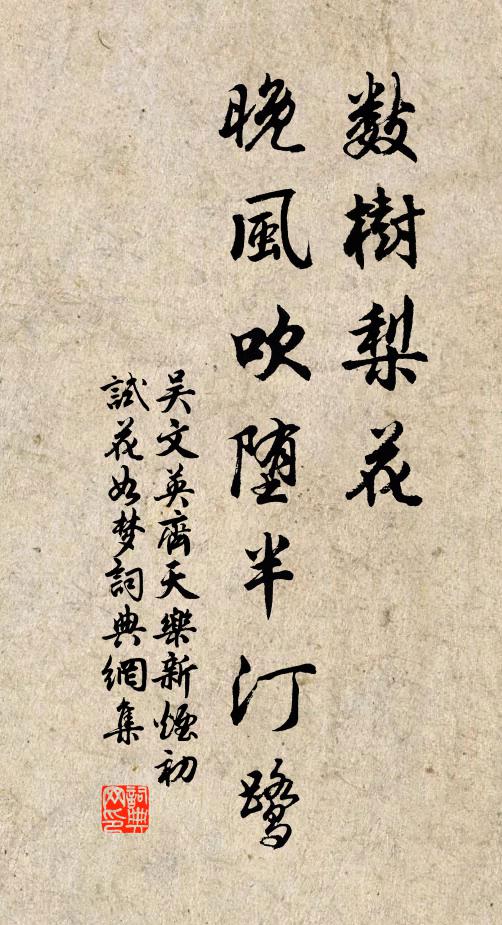 數樹梨花
晚風吹堕半汀鷺
吴文英齊天樂新煙初
試花如梦詞典網集
詞典
网印